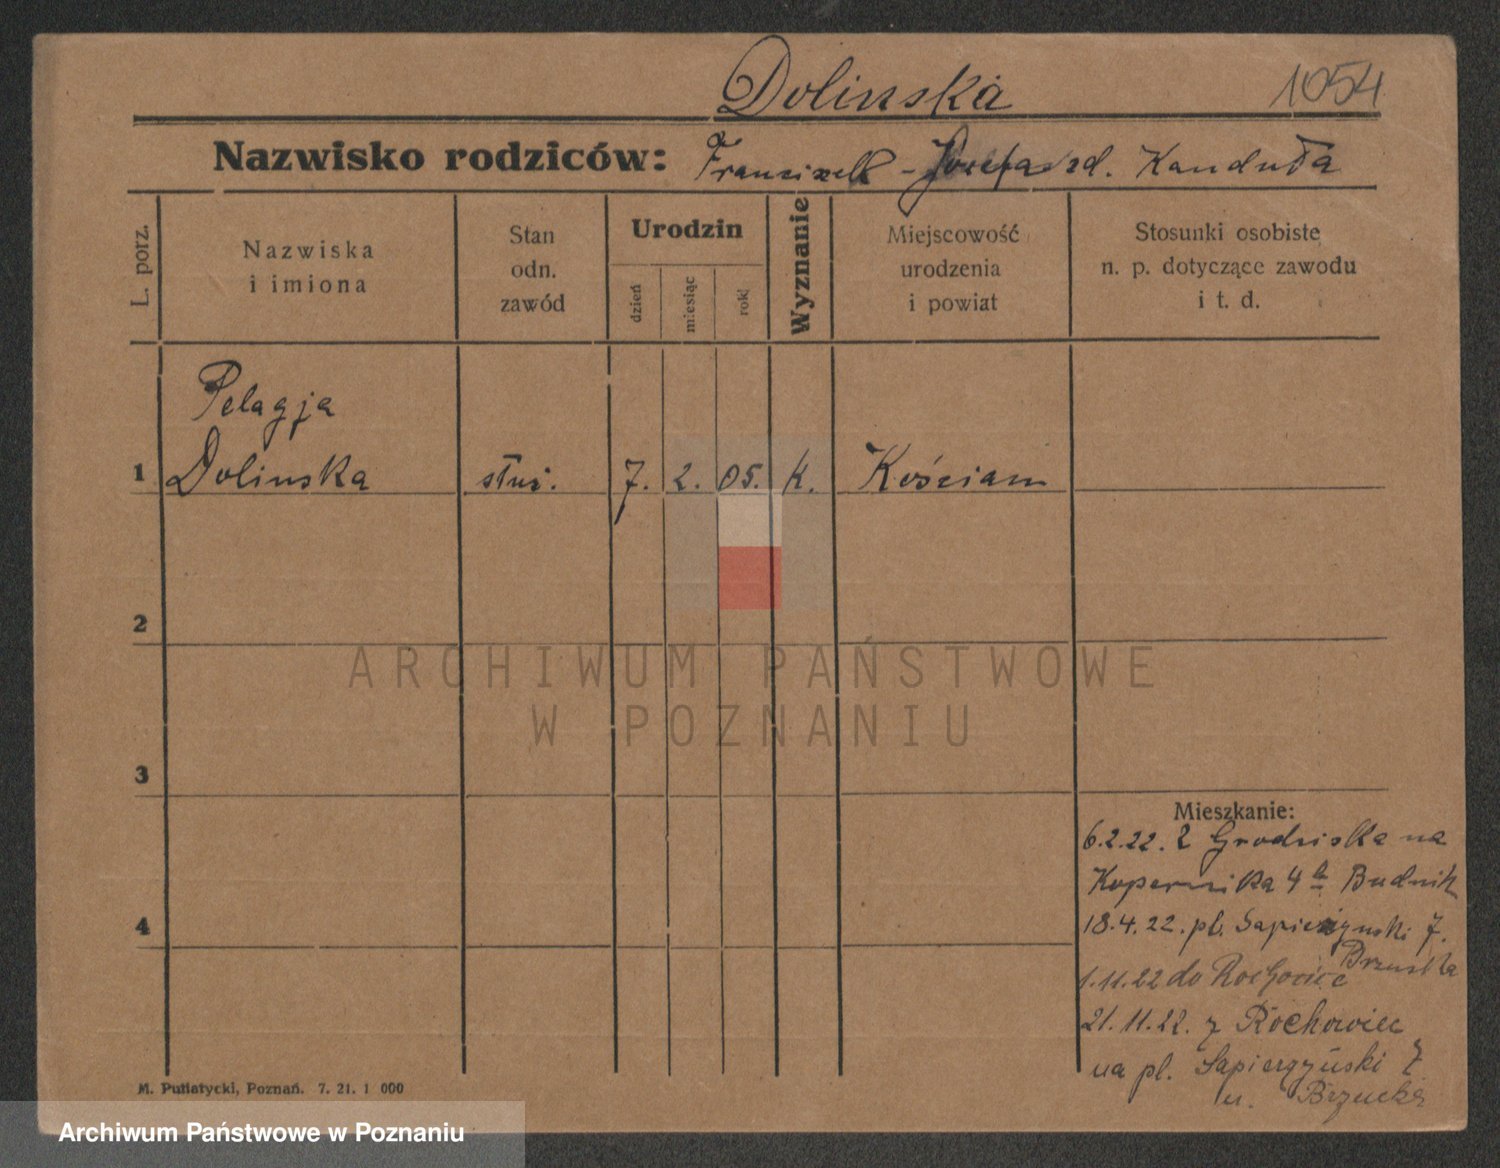 Dolinska 1054
Nazwisko rodziców: Franciszek - Józefa zd. Kanduła
L. porz.
Nazwiska
i imiona
Stan
odn.
zawód
Urodzin
dzień
miesiąc
rok
Wyznanie
Miejscowość
urodzenia
i powiat
Stosunki osobiste
n. p. dotyczące zawodu
i t. d.
Pelagja
1 Dolinska służ. 7. 2. 05. K. Kościan
2
ARCHIWUM PAŃSTWOWE
W POZNANIU
3
Mieszkanie:
6.2.22. z Grodziska na
Kopernika 4 Budnik
4
18.4.22. pl. Sapieżynski 7.
1.11.22 do
21.11.22. z Rochowiec
na pl. Sapiezyński 7
u.
M. Putiatycki, Poznań. 7. 21. 1 000
Archiwum Państwowe w Poznaniu